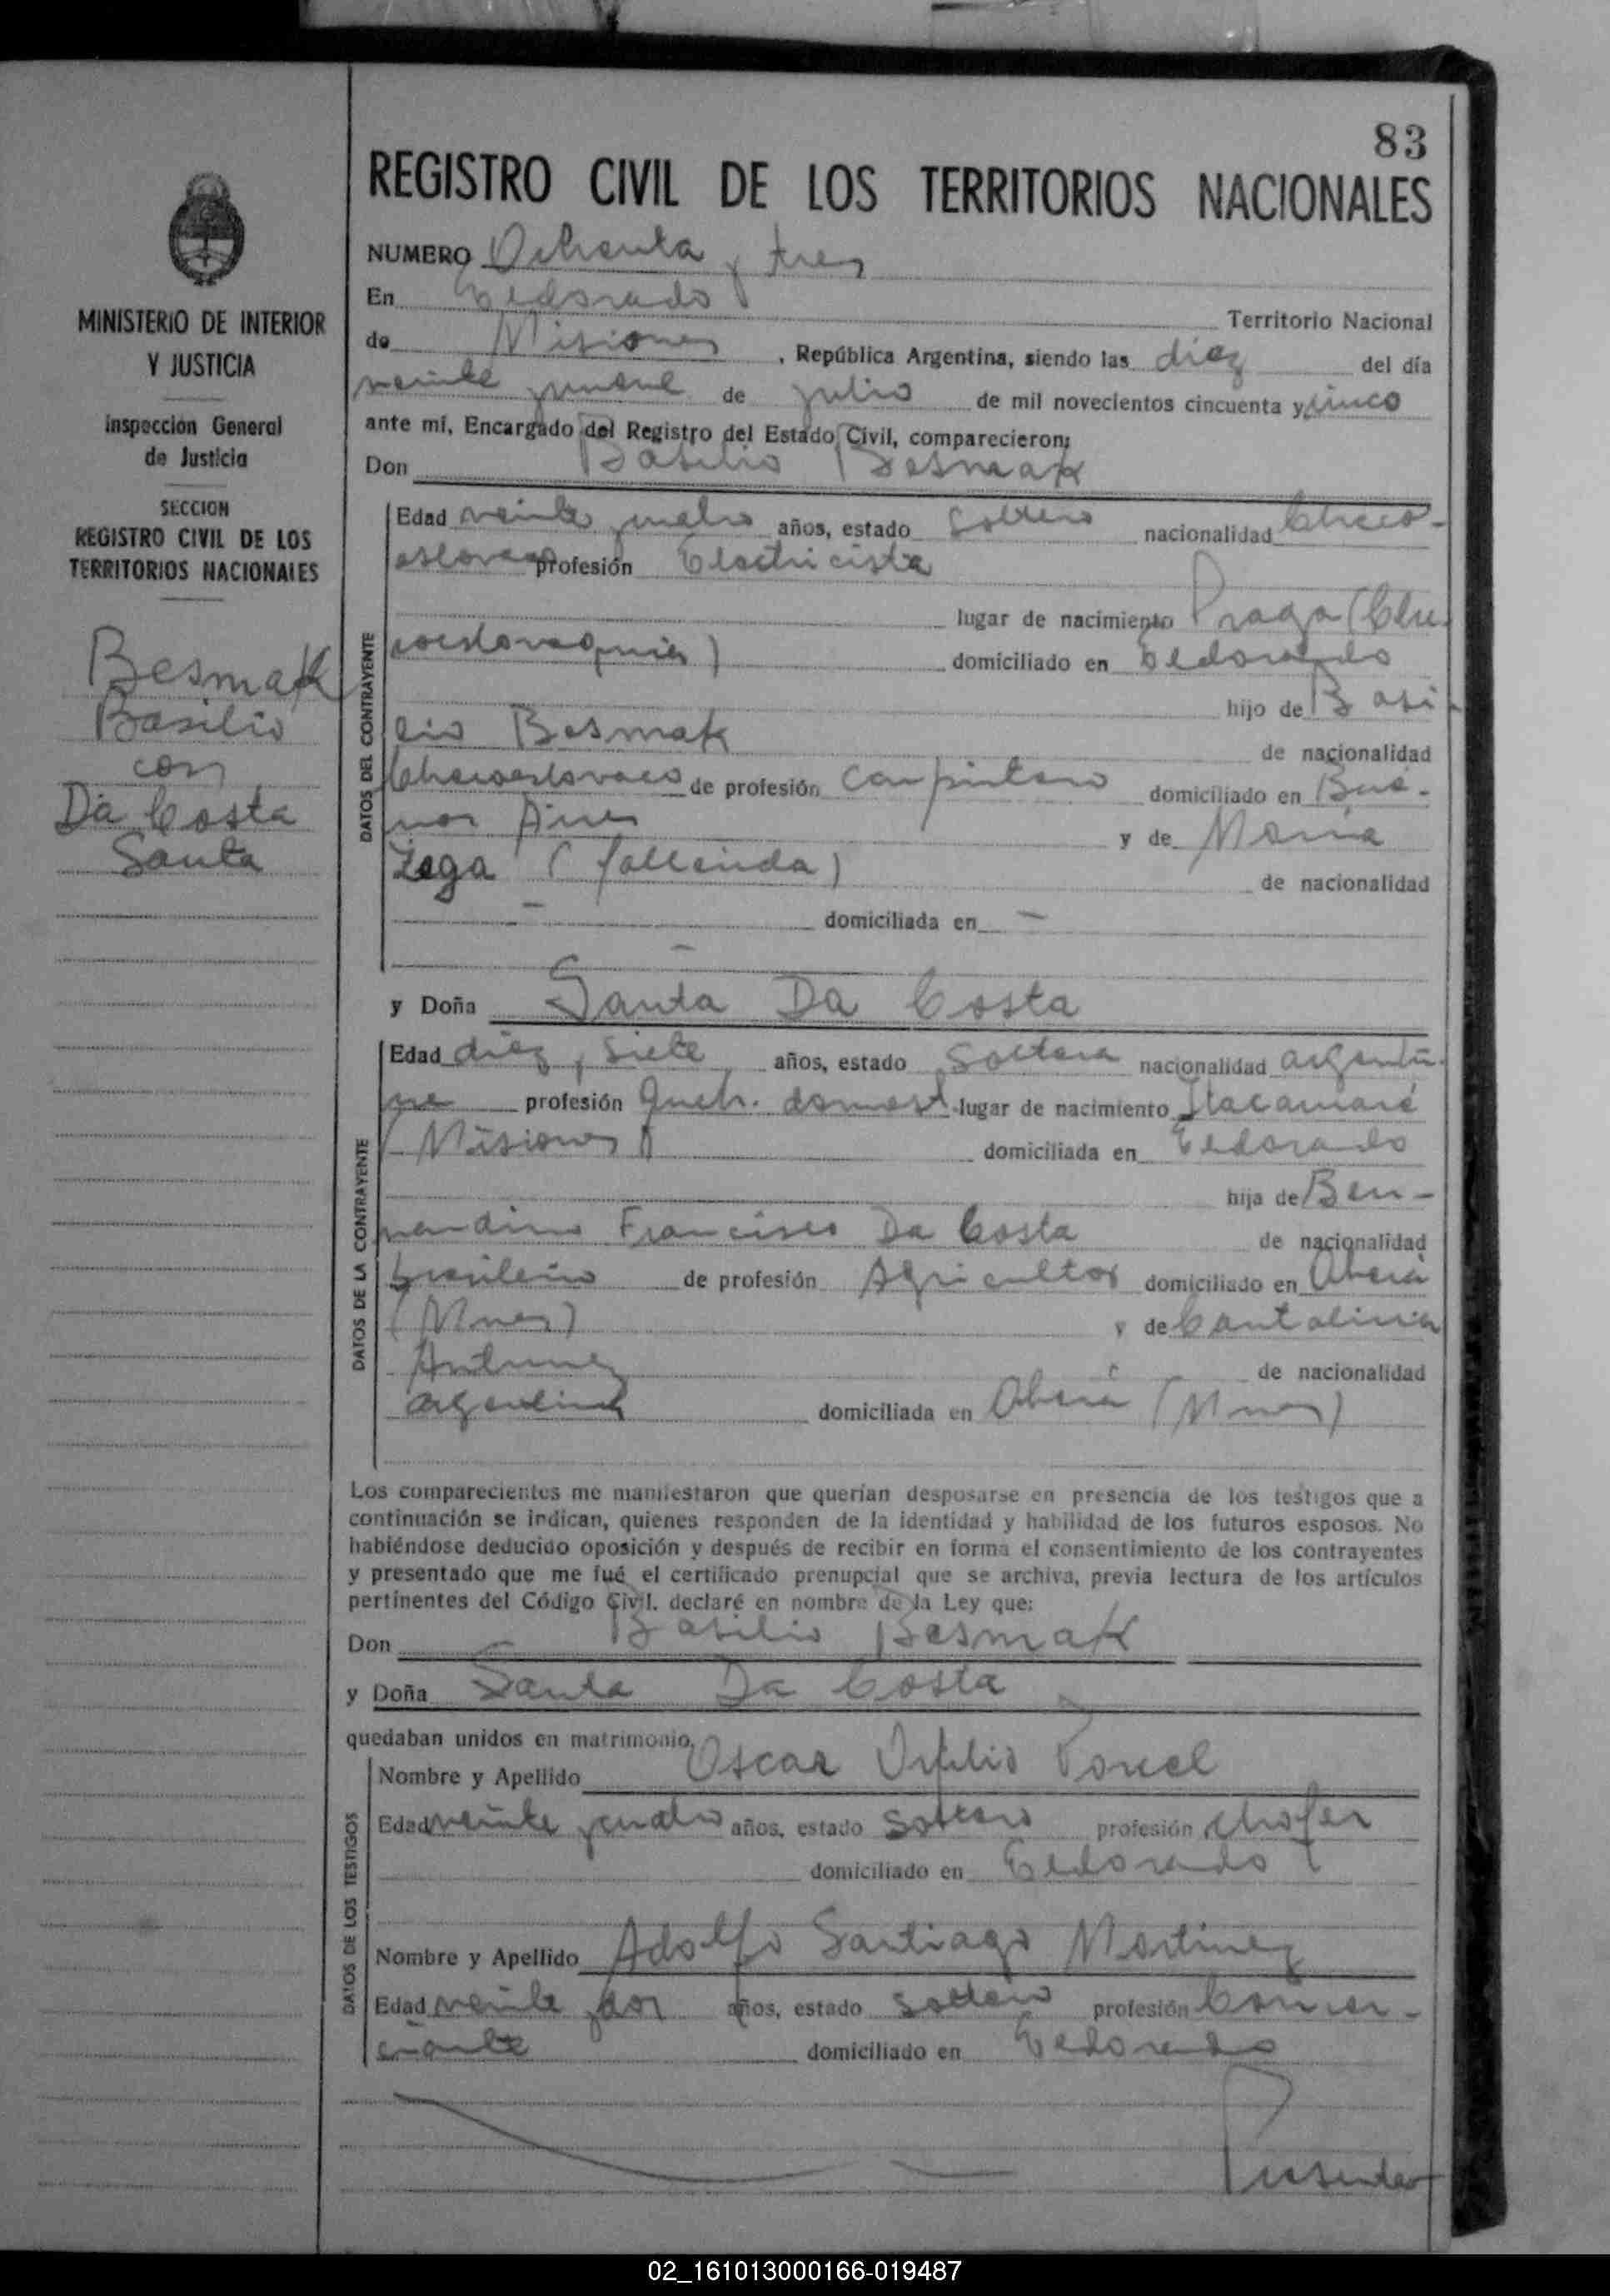 83
REGISTRO CIVIL DE LOS TERRITORIOS NACIONALES
MINISTERIO DE INTERIOR
Y JUSTICIA
Inspección General
de Justicia
SECCION
REGISTRO CIVIL DE LOS
TERRITORIOS NACIONALES
Besmak
Basilio
con
Da Costa
Santa
NUMERO Ochenta y tres
En Eldorado
Territorio Nacional
de Misiones, República Argentina, siendo las diez del día
veinte y nueve de julio de mil novecientos cincuenta y cinco
ante mí, Encargado del Registro del Estado Civil, comparecieron:
Don Basilio Besmak
DATOS DEL CONTRAYENTE
Edad veinte y cuatro años, estado soltero nacionalidad Checo-
eslovaco profesión Electricista
lugar de nacimiento Praga (Che-
coeslovaquia) domiciliado en Eldorado
hijo de Basi-
lio Besmak de nacionalidad
Checoeslovaco de profesión Carpintero domiciliado en Bue-
nos Aires y de María
Zega (fallecida) de nacionalidad
- domiciliada en -
-
y Doña Santa Da Costa
DATOS DE LA CONTRAYENTE
Edad diez y siete años, estado soltera nacionalidad argenti-
na profesión Queh. domest. lugar de nacimiento Itacaruaré
(Misiones) domiciliada en Eldorado
hija de Ber-
nardino Francisco Da Costa de nacionalidad
brasileño de profesión Agricultor domiciliado en Oberá
(Mnes) y de Cantalicia
Antunez de nacionalidad
argentina domiciliada en Oberá (Mnes)
Los comparecientes me manifestaron que querían desposarse en presencia de los testigos que a
continuación se indican, quienes responden de la identidad y habilidad de los futuros esposos. No
habiéndose deducido oposición y después de recibir en forma el consentimiento de los contrayentes
y presentado que me fué el certificado prenupcial que se archiva, previa lectura de los artículos
pertinentes del Código Civil. declaré en nombre de la Ley que:
Don Basilio Besmak
y Doña Santa Da Costa
quedaban unidos en matrimonio.
DATOS DE LOS TESTIGOS
Nombre y Apellido Oscar
Edad veinte y cuatro años, estado soltero profesión chofer
domiciliado en Eldorado
Nombre y Apellido Adolfo Santiago Martinez
Edad veinte y dos años, estado soltero profesión Comer-
ciante domiciliado en Eldorado
02_161013000166-019487